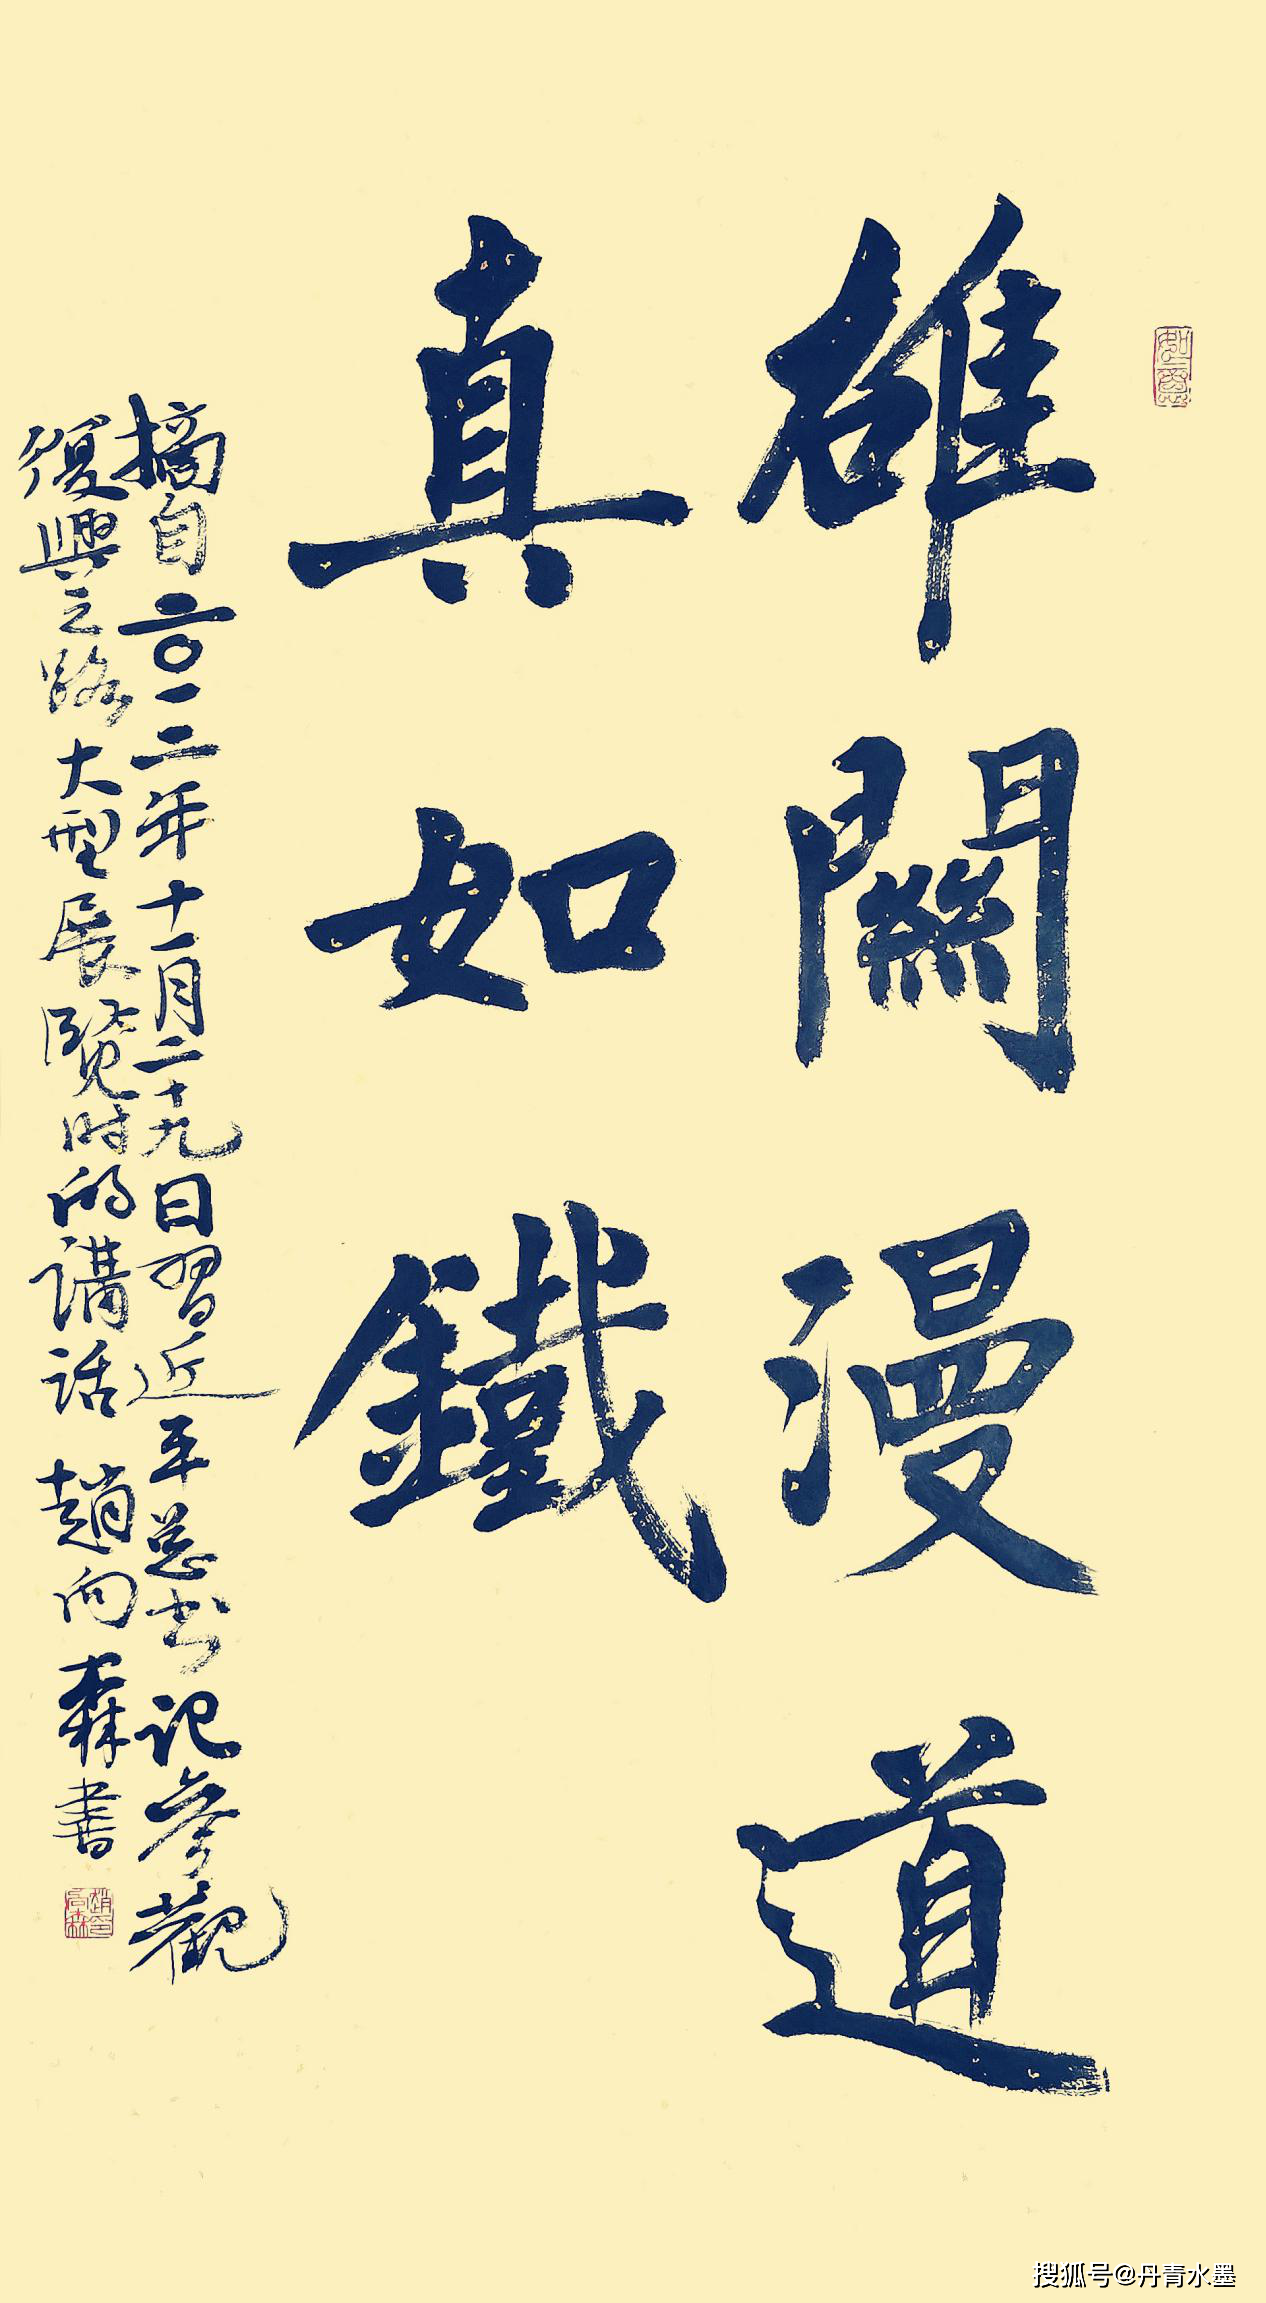 雄關漫道
真如鐵
摘自二〇一二年十一月二十九日習近平总书记參觀
復興之路大型展覽时的講話 趙向森書
如意
搜狐号@丹青水墨